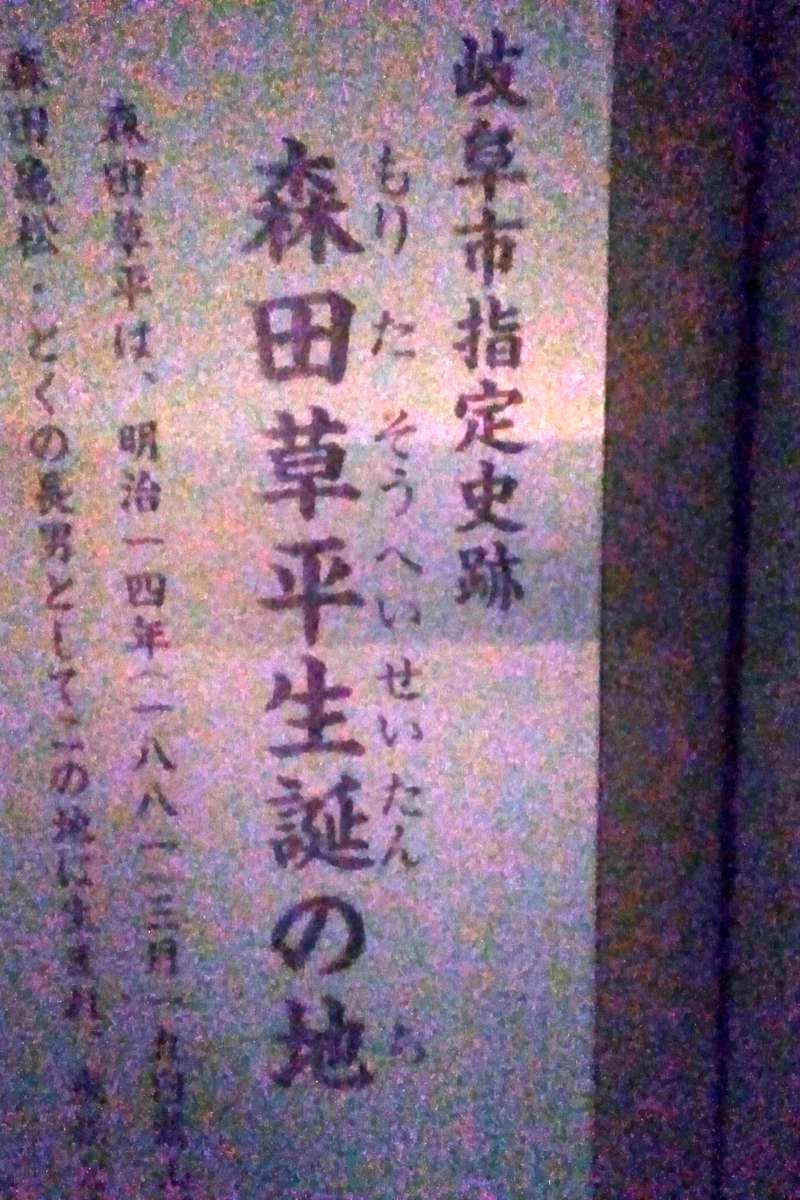 岐阜市指定史跡
もりたそうへいせいたん ち
森田草平生誕の地
森田草平は、明治一四年(一八八一)三月一九日
森田亀松・とくの長男としてこの地に生まれ、